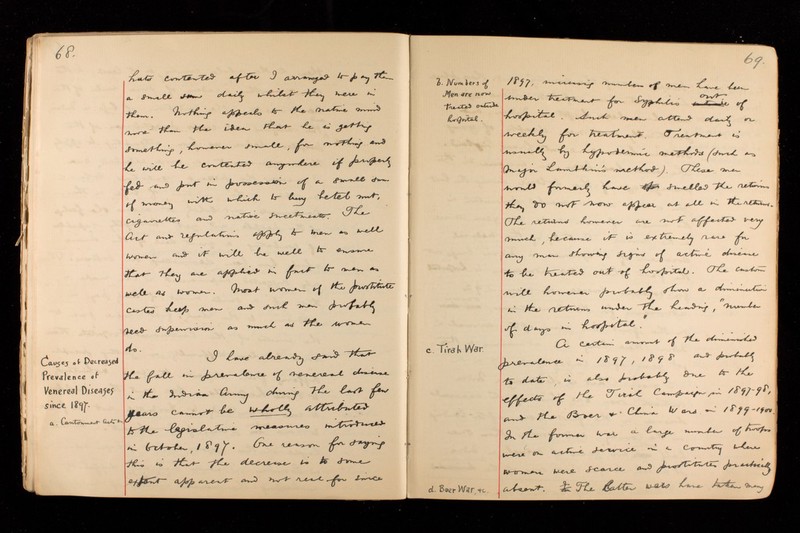 68.
hate contented after I arranged to pay them
a small sum daily whilst they were in
them. Nothing appeals to the native mind
more than the idea that he is getting
something, however small, for nothing and
he will be contented anywhere if properly
fed and put in possession of a small sum
of money with which to buy betel nut,
cigarettes and native sweetmeats. The
Act and regulations apply to men as well
women and it will be well to ensure
that they are applied in fact to men as
well as women. Most women of the prostitute
castes keep men and such men probably
need supervision as much as the women
do.
Causes of Decreased
Prevalence of
Venereal Diseases
since 1897.
a. Cantonment
I have already said that
the fall in prevalence of venereal disease
in the Indian Army during the last few
years cannot be wholly attributed
to the legislative measures introduced
in October, 1897. One reason for saying
this is that the decrease is to some
extent apparent and not real for since
69.
b. Numbers of
Men are now
treated outside
hospital.
1897, increasing numbers of men have been
under treatment for Syphilis out of
hospital. Such men attend daily or
weekly for treatment. Treatment is
usually by hypodermic methods (such as
Major Lambkin's method). These men
would formerly have swelled the returns
they do not now appear at all in the returns.
The returns however are not affected very
much, because it is extremely rare for
any man showing signs of active disease
to be treated out of hospital. The custom
will however probably show a diminution
in the returns under the heading, "number
of days in hospital."
c. Tirah War.
A certain amount of the diminished
prevalence in 1897, 1898 and probably
to date, is also probably due to the
effects of the Tirah Campaign in 1897-98,
and the Boer & China Wars in 1899-1900.
In the former war a large number of troops
were on active service in a country where
women were scarce and prostitutes practically
d. Boer War, &c.
absent. The latter wars have taken many